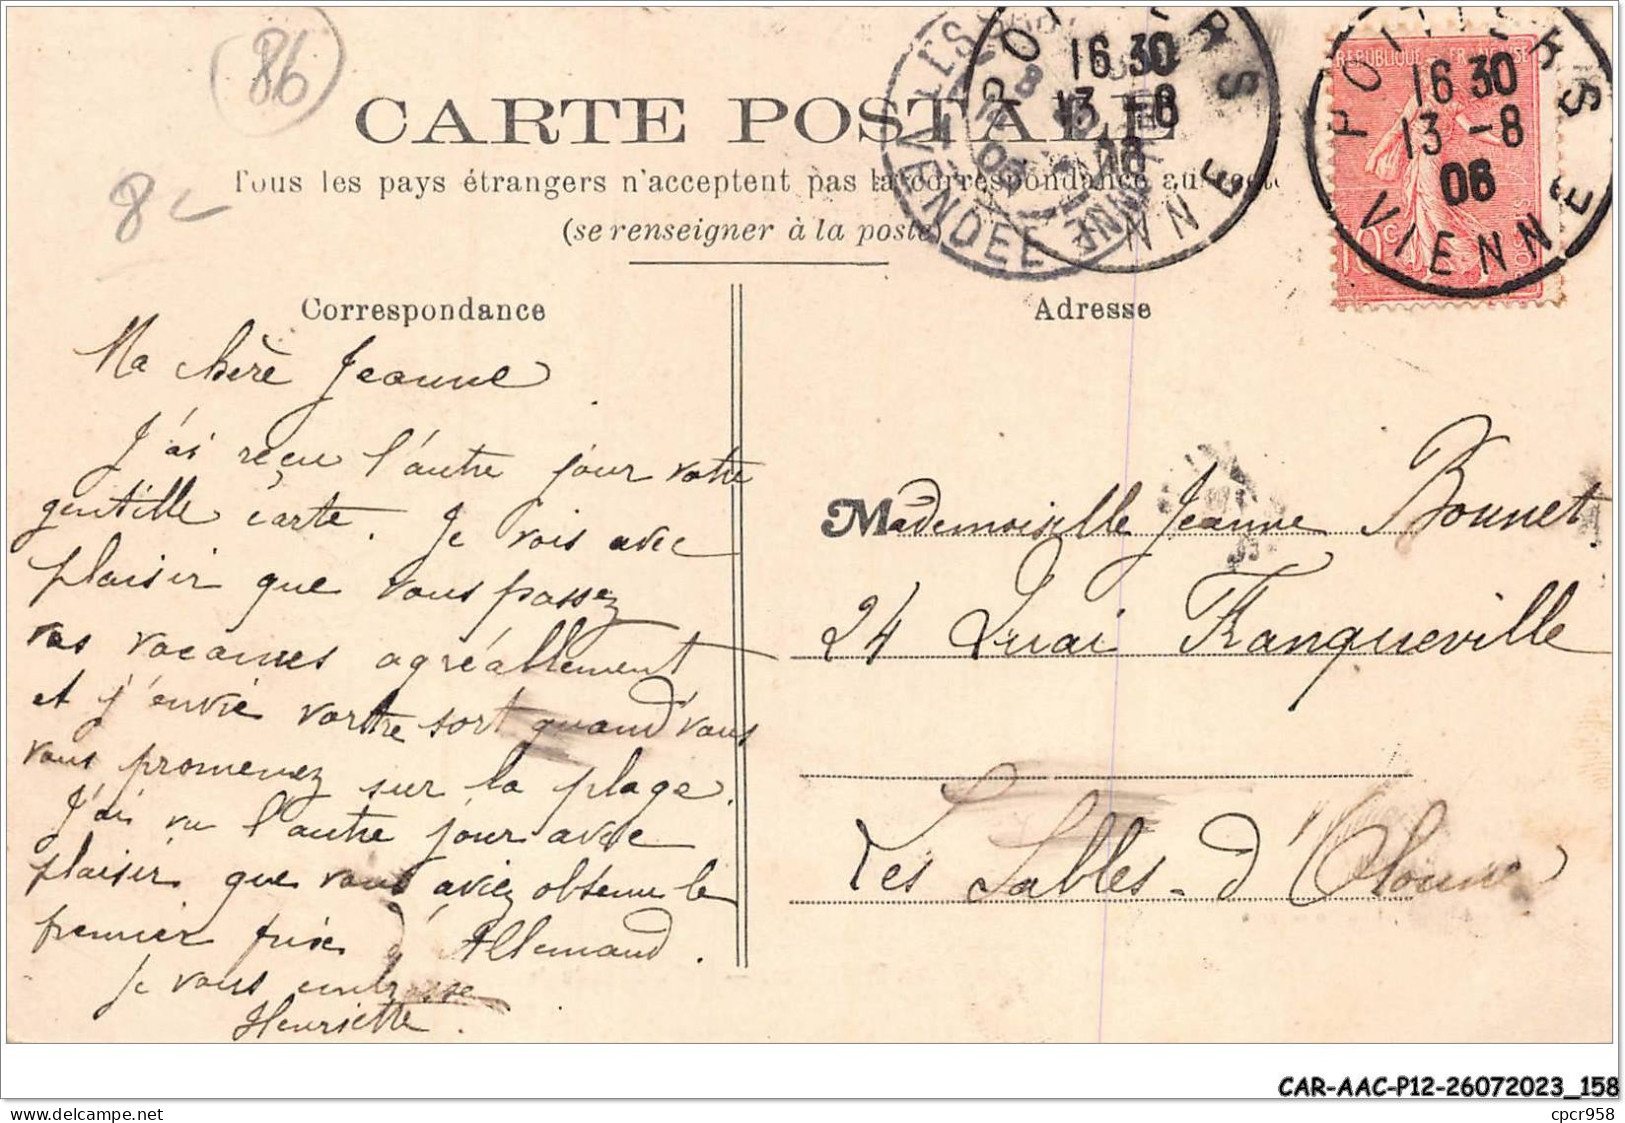 86
CARTE POSTALE
8c
Tous les pays étrangers n'acceptent pas la correspondance au recto
(se renseigner à la poste)
POITIERS
16 30
13 -8
06
VIENNE
VENDÉE
REPUBLIQUE FRANÇAISE
10c
POITIERS
16 30
13 -8
06
VIENNE
Correspondance
Ma chère Jeanne
J'ai reçu l'autre jour votre
gentille carte. Je vois avec
plaisir que vous passez
vos vacances agréablement
et j'envie vortre sort quand vous
vous promenez sur la plage.
J'ai vu l'autre jour avec
plaisir que vous aviez obtenu le
premier prix d'Allemand.
Je vous embrasse
Henriette.
Adresse
Mademoiselle Jeanne Bonnet
24 Quai Franqueville
Les Sables-d'Olonne
CAR-AAC-P12-26072023_158
delcampe.net
cpcr958